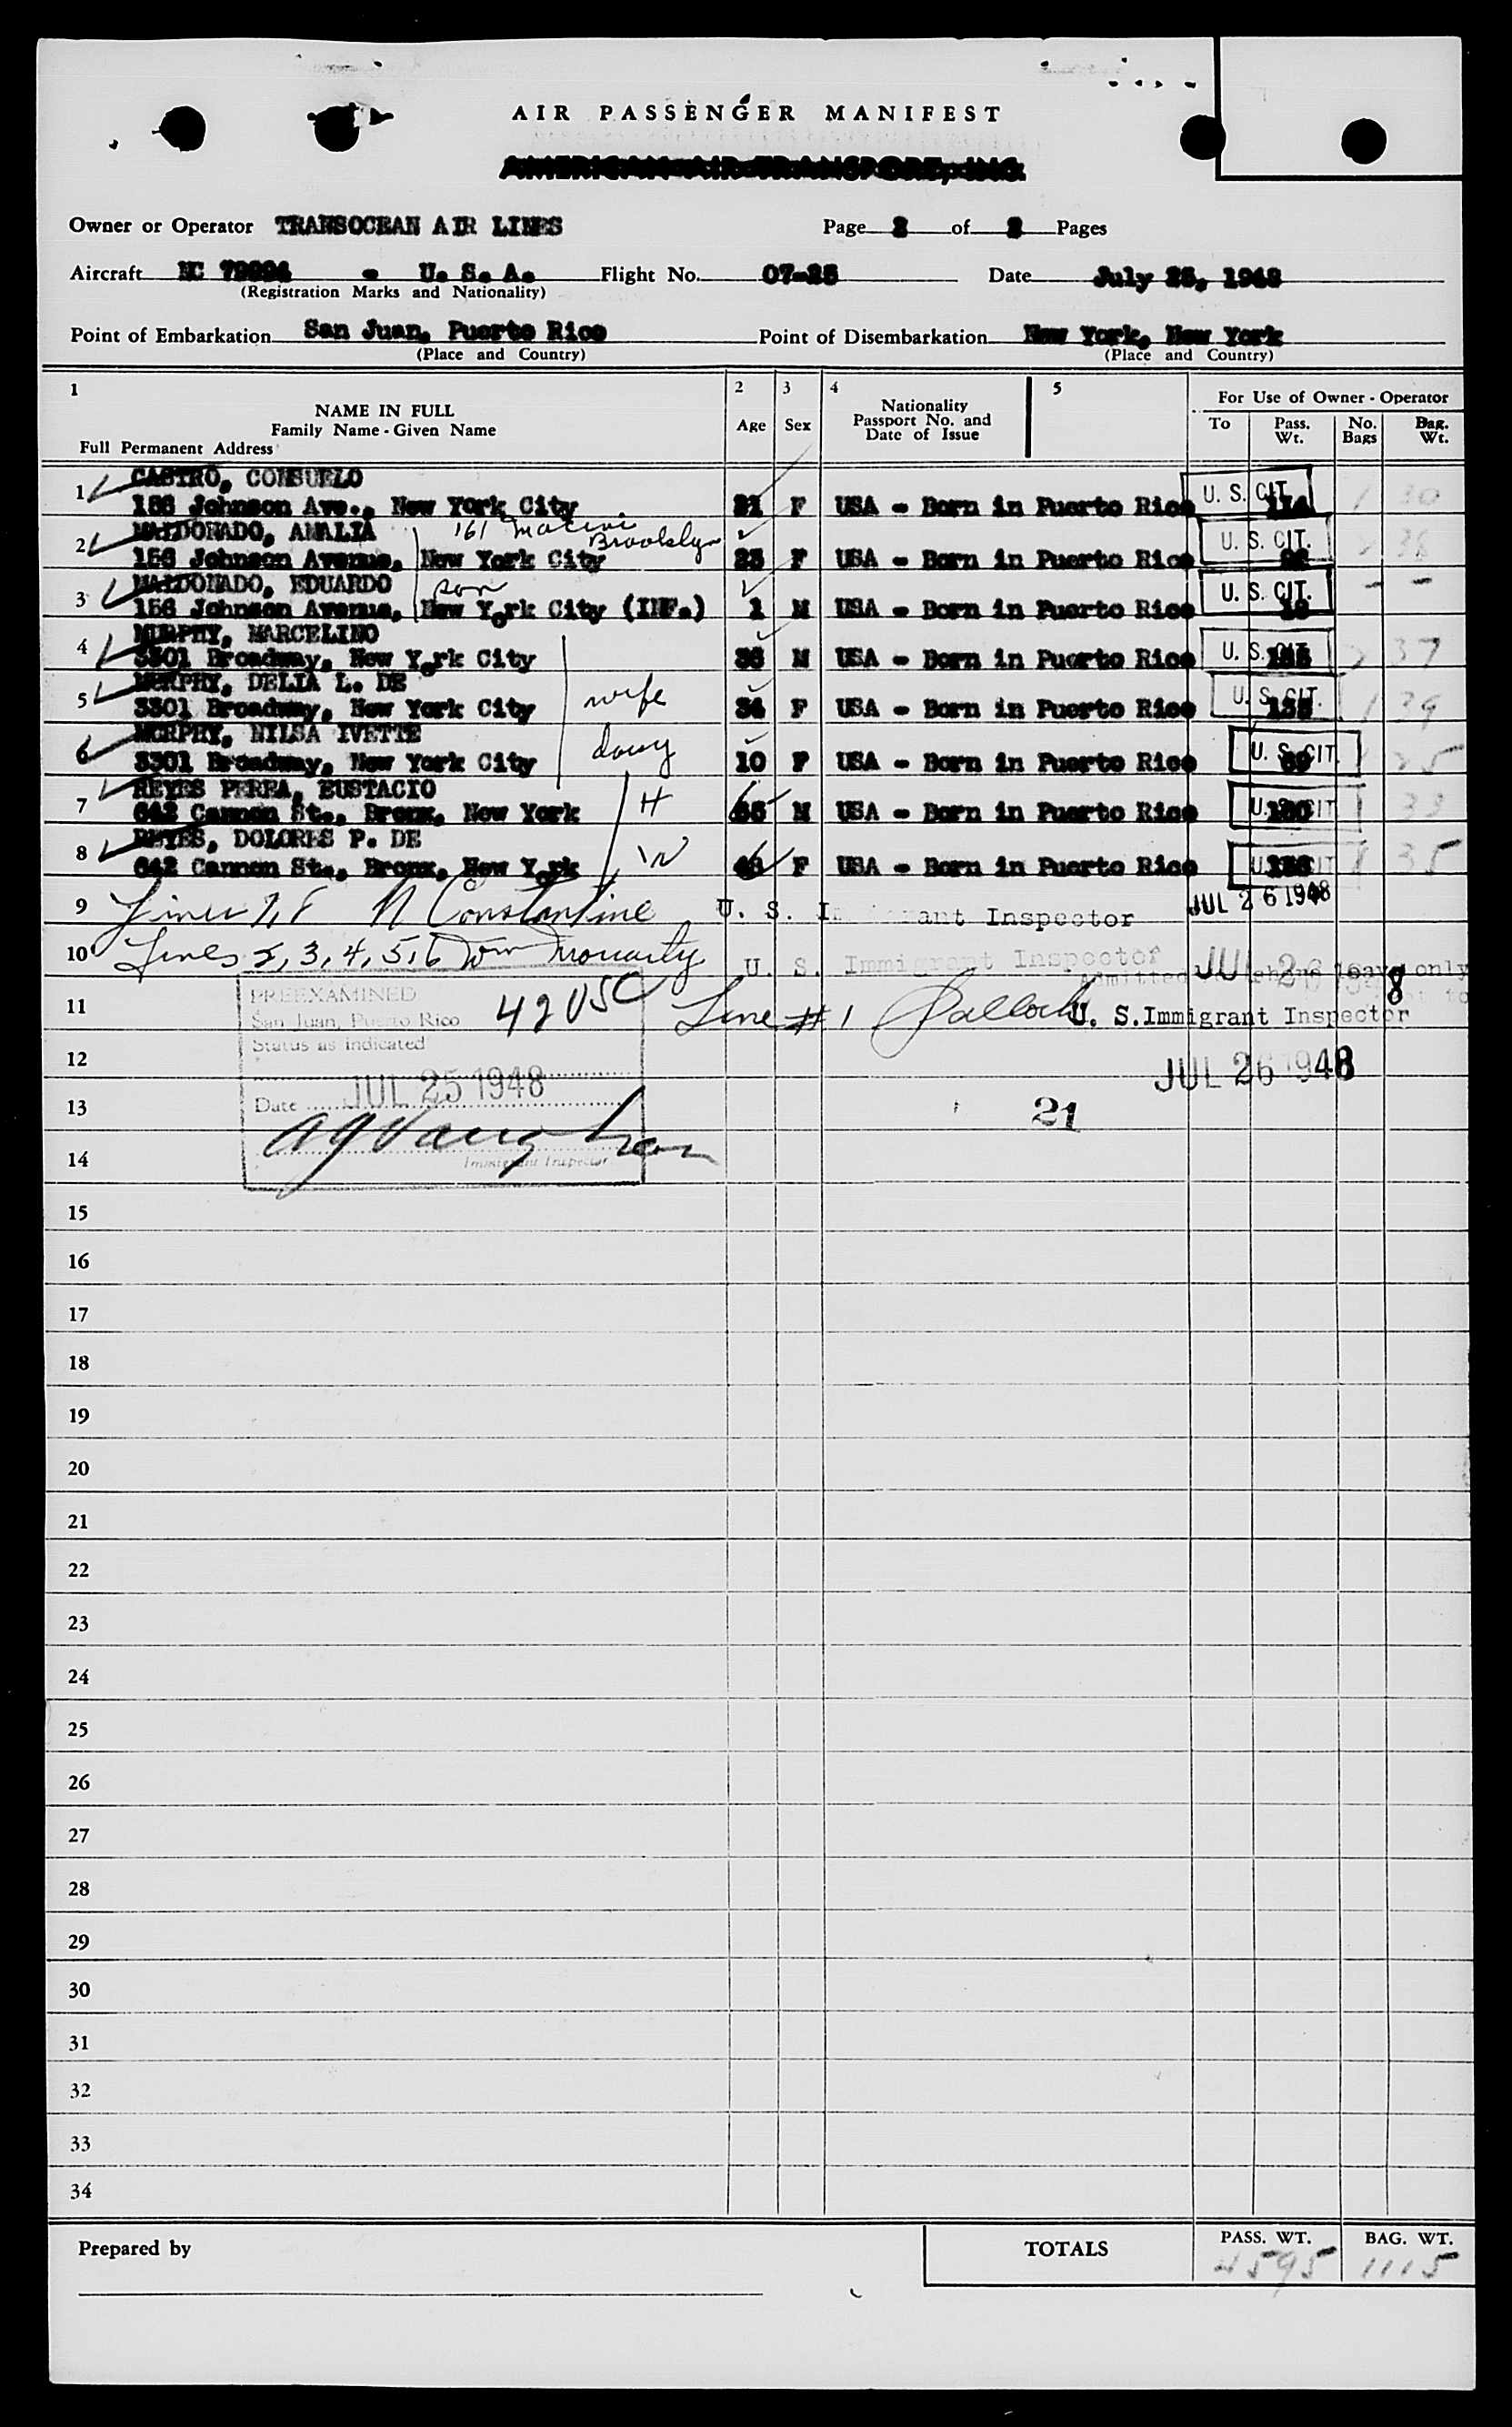 AIR PASSENGER MANIFEST
AMERICAN AIR TRANSPORT, INC.
Owner or Operator TRANSOCEAN AIR LINES Page 2 of 2 Pages
Aircraft NC - U. S. A. Flight No. 07-25 Date July 25, 1948
(Registration Marks and Nationality)
Point of Embarkation San Juan, Puerto Rico Point of Disembarkation New York, New York
(Place and Country) (Place and Country)
1 2 3 4 5
NAME IN FULL
Family Name - Given Name
Full Permanent Address
Age Sex
Nationality
Passport No. and
Date of Issue
For Use of Owner - Operator
To Pass. Wt. No. Bags Bag. Wt.
1 CASTRO, CONSUELO
156 Johnson Ave., New York City 21 F USA - Born in Puerto Rico U. S. CIT. 114 1 30
2 MALDONADO, AMALIA 161 Brooklyn
156 Johnson Avenue, New York City 23 F USA - Born in Puerto Rico U. S. CIT. 2 38
3 MALDONADO, EDUARDO son
156 Johnson Avenue, New York City (INF.) 1 M USA - Born in Puerto Rico U. S. CIT. - -
4 MURPHY, MARCELINO
3301 Broadway, New York City 36 M USA - Born in Puerto Rico U. S. CIT 2 37
5 MURPHY, DELIA L. DE
3301 Broadway, New York City wife 34 F USA - Born in Puerto Rico U. S. CIT. 135 1 39
6 MURPHY, NILSA IVETTE
3301 Broadway, New York City daug 10 F USA - Born in Puerto Rico U. S. CIT. 69 1 25
7 REYES PEREA, EUSTACIO
642 Cannon St., Bronx, New York H M USA - Born in Puerto Rico U. S. CIT 33
8 REYES, DOLORES P. DE
642 Cannon St., Bronx, New York W F USA - Born in Puerto Rico U. S. CIT 1 35
9 Lines 7, 8 N Constantine U. S. Immigrant Inspector JUL 26 1948
10 Lines 2, 3, 4, 5, 6 Wm Moriarty U. S. Immigrant Inspector JUL 26 1948
Admitted shore leave only
11 PREEXAMINED 42 USC Line # 1 U. S. Immigrant Inspector
San Juan, Puerto Rico
Status as indicated
12 JUL 26 1948
13 Date JUL 25 1948 21
A G Vaughan
14 Immigrant Inspector
15
16
17
18
19
20
21
22
23
24
25
26
27
28
29
30
31
32
33
34
Prepared by TOTALS PASS. WT. 4595 BAG. WT. 1115